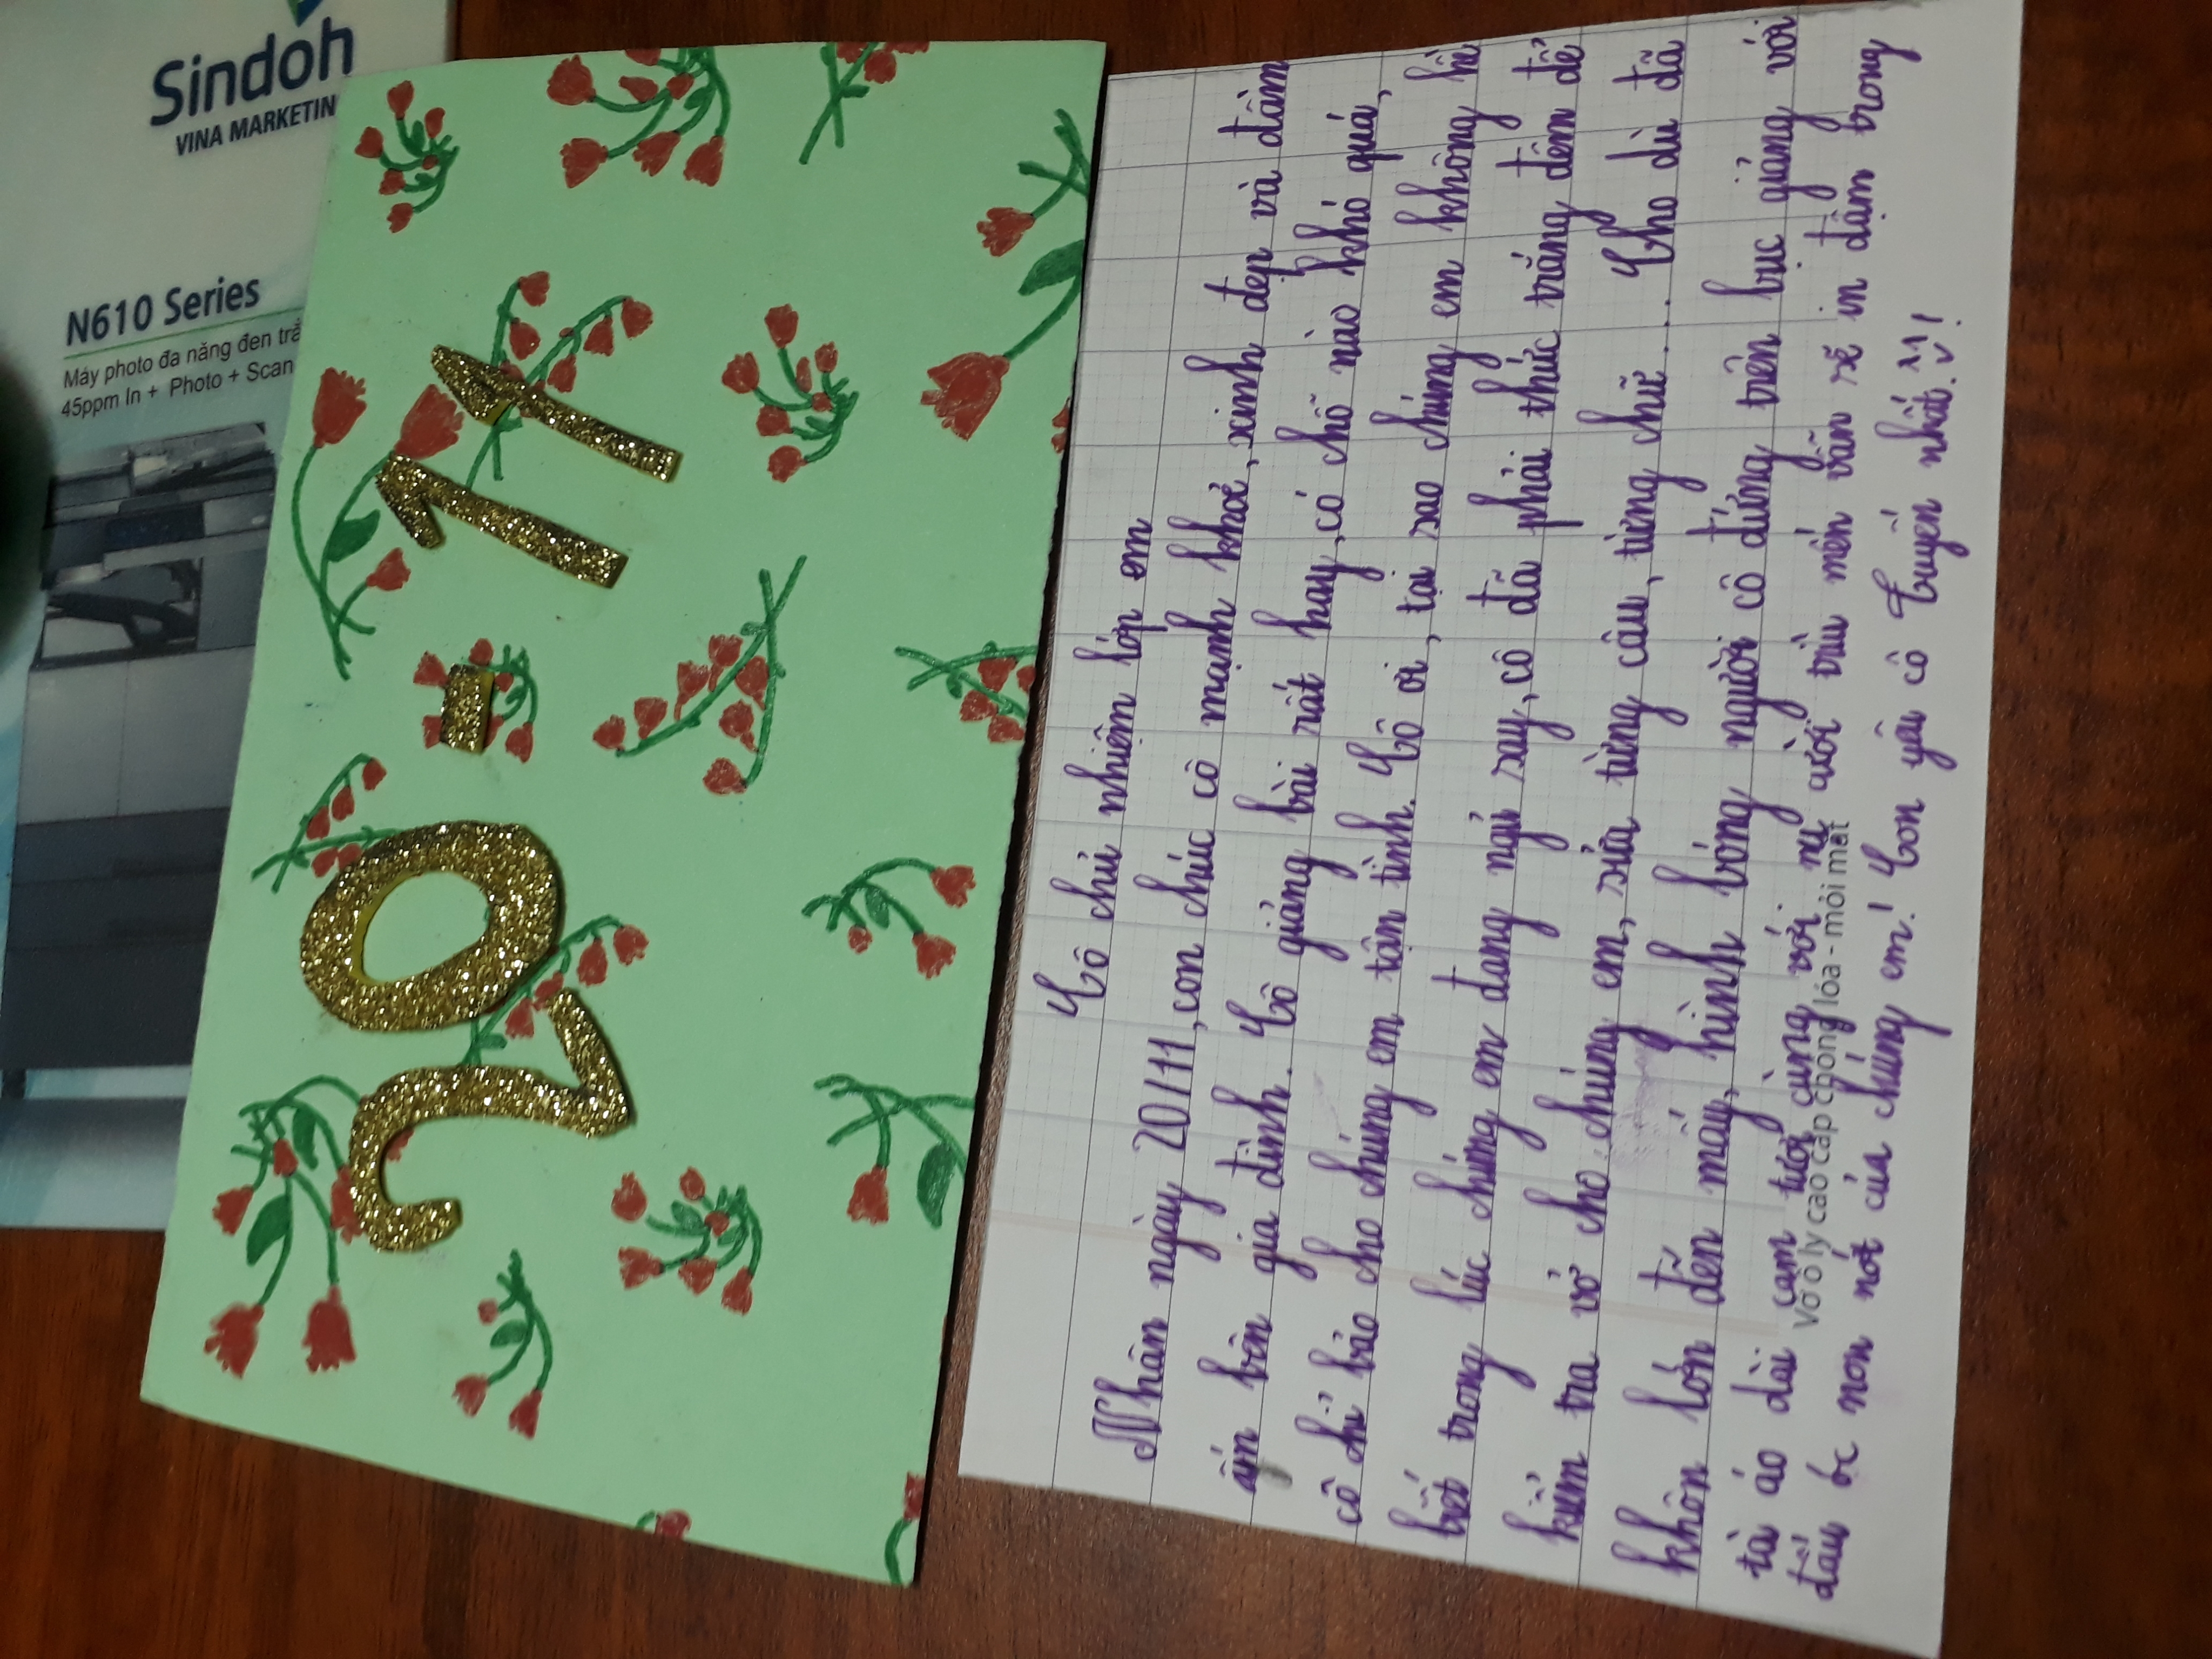 Sindoh
VINA MARKETIN
N610 Series
Máy photo đa năng đen trắ
45ppm In + Photo + Scan
20-11
Cô chủ nhiệm lớp em
Nhân ngày 20/11, con chúc cô mạnh khoẻ, xinh đẹp và đầm
ấm bên gia đình. Cô giảng bài rất hay, có chỗ nào khó quá,
cô chỉ bảo cho chúng em tận tình. Cô ơi, tại sao chúng em không hề
biết trong lúc chúng em đang ngủ say, cô đã phải thức trắng đêm để
kiểm tra vở cho chúng em, sửa từng câu, từng chữ.... Cho dù đã
khôn lớn đến mấy, hình bóng người cô đứng trên bục giảng với
tà áo dài cam tươi cùng với nụ cười trìu mến vẫn sẽ in đậm trong
Vở ô ly cao cấp chống lóa - mỏi mắt
đầu óc non nớt của chúng em! Con yêu cô Tuyến nhất!